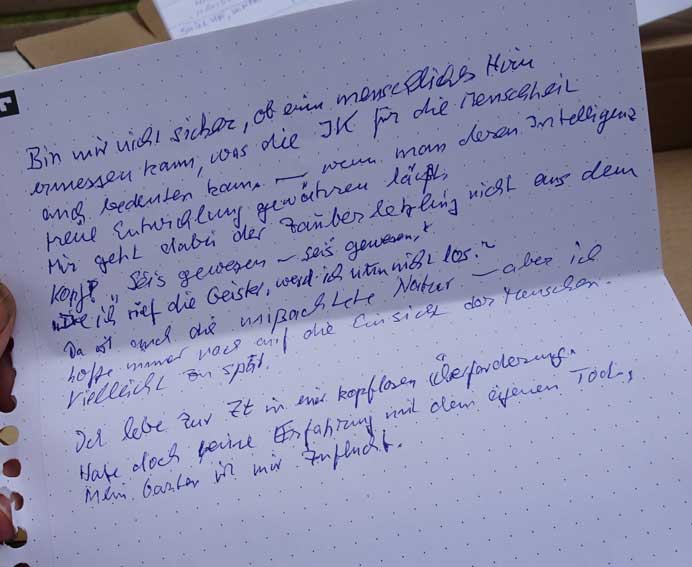 Bin mir nicht sicher, ob ein menschliches Hirn
ermessen kann, was die IK für die Menschheit
auch bedeuten kann. — wenn man deren Intelligenz
freie Entwicklung gewähren läßt.
Mir geht dabei der Zauberlehrling nicht aus dem
Kopf: "Seis gewesen – seis gewesen,"
"Die ich rief die Geister, werd ich nun nicht los."
Da ist auch die mißachtete Natur – aber ich
hoffe immer noch auf die Einsicht der Menschen.
Vielleicht zu spät.
Ich lebe zur Zt in einer kopflosen Überforderung.
Habe doch keine Erfahrung mit dem eigenen Tod.
Mein Garten ist mir Zuflucht.